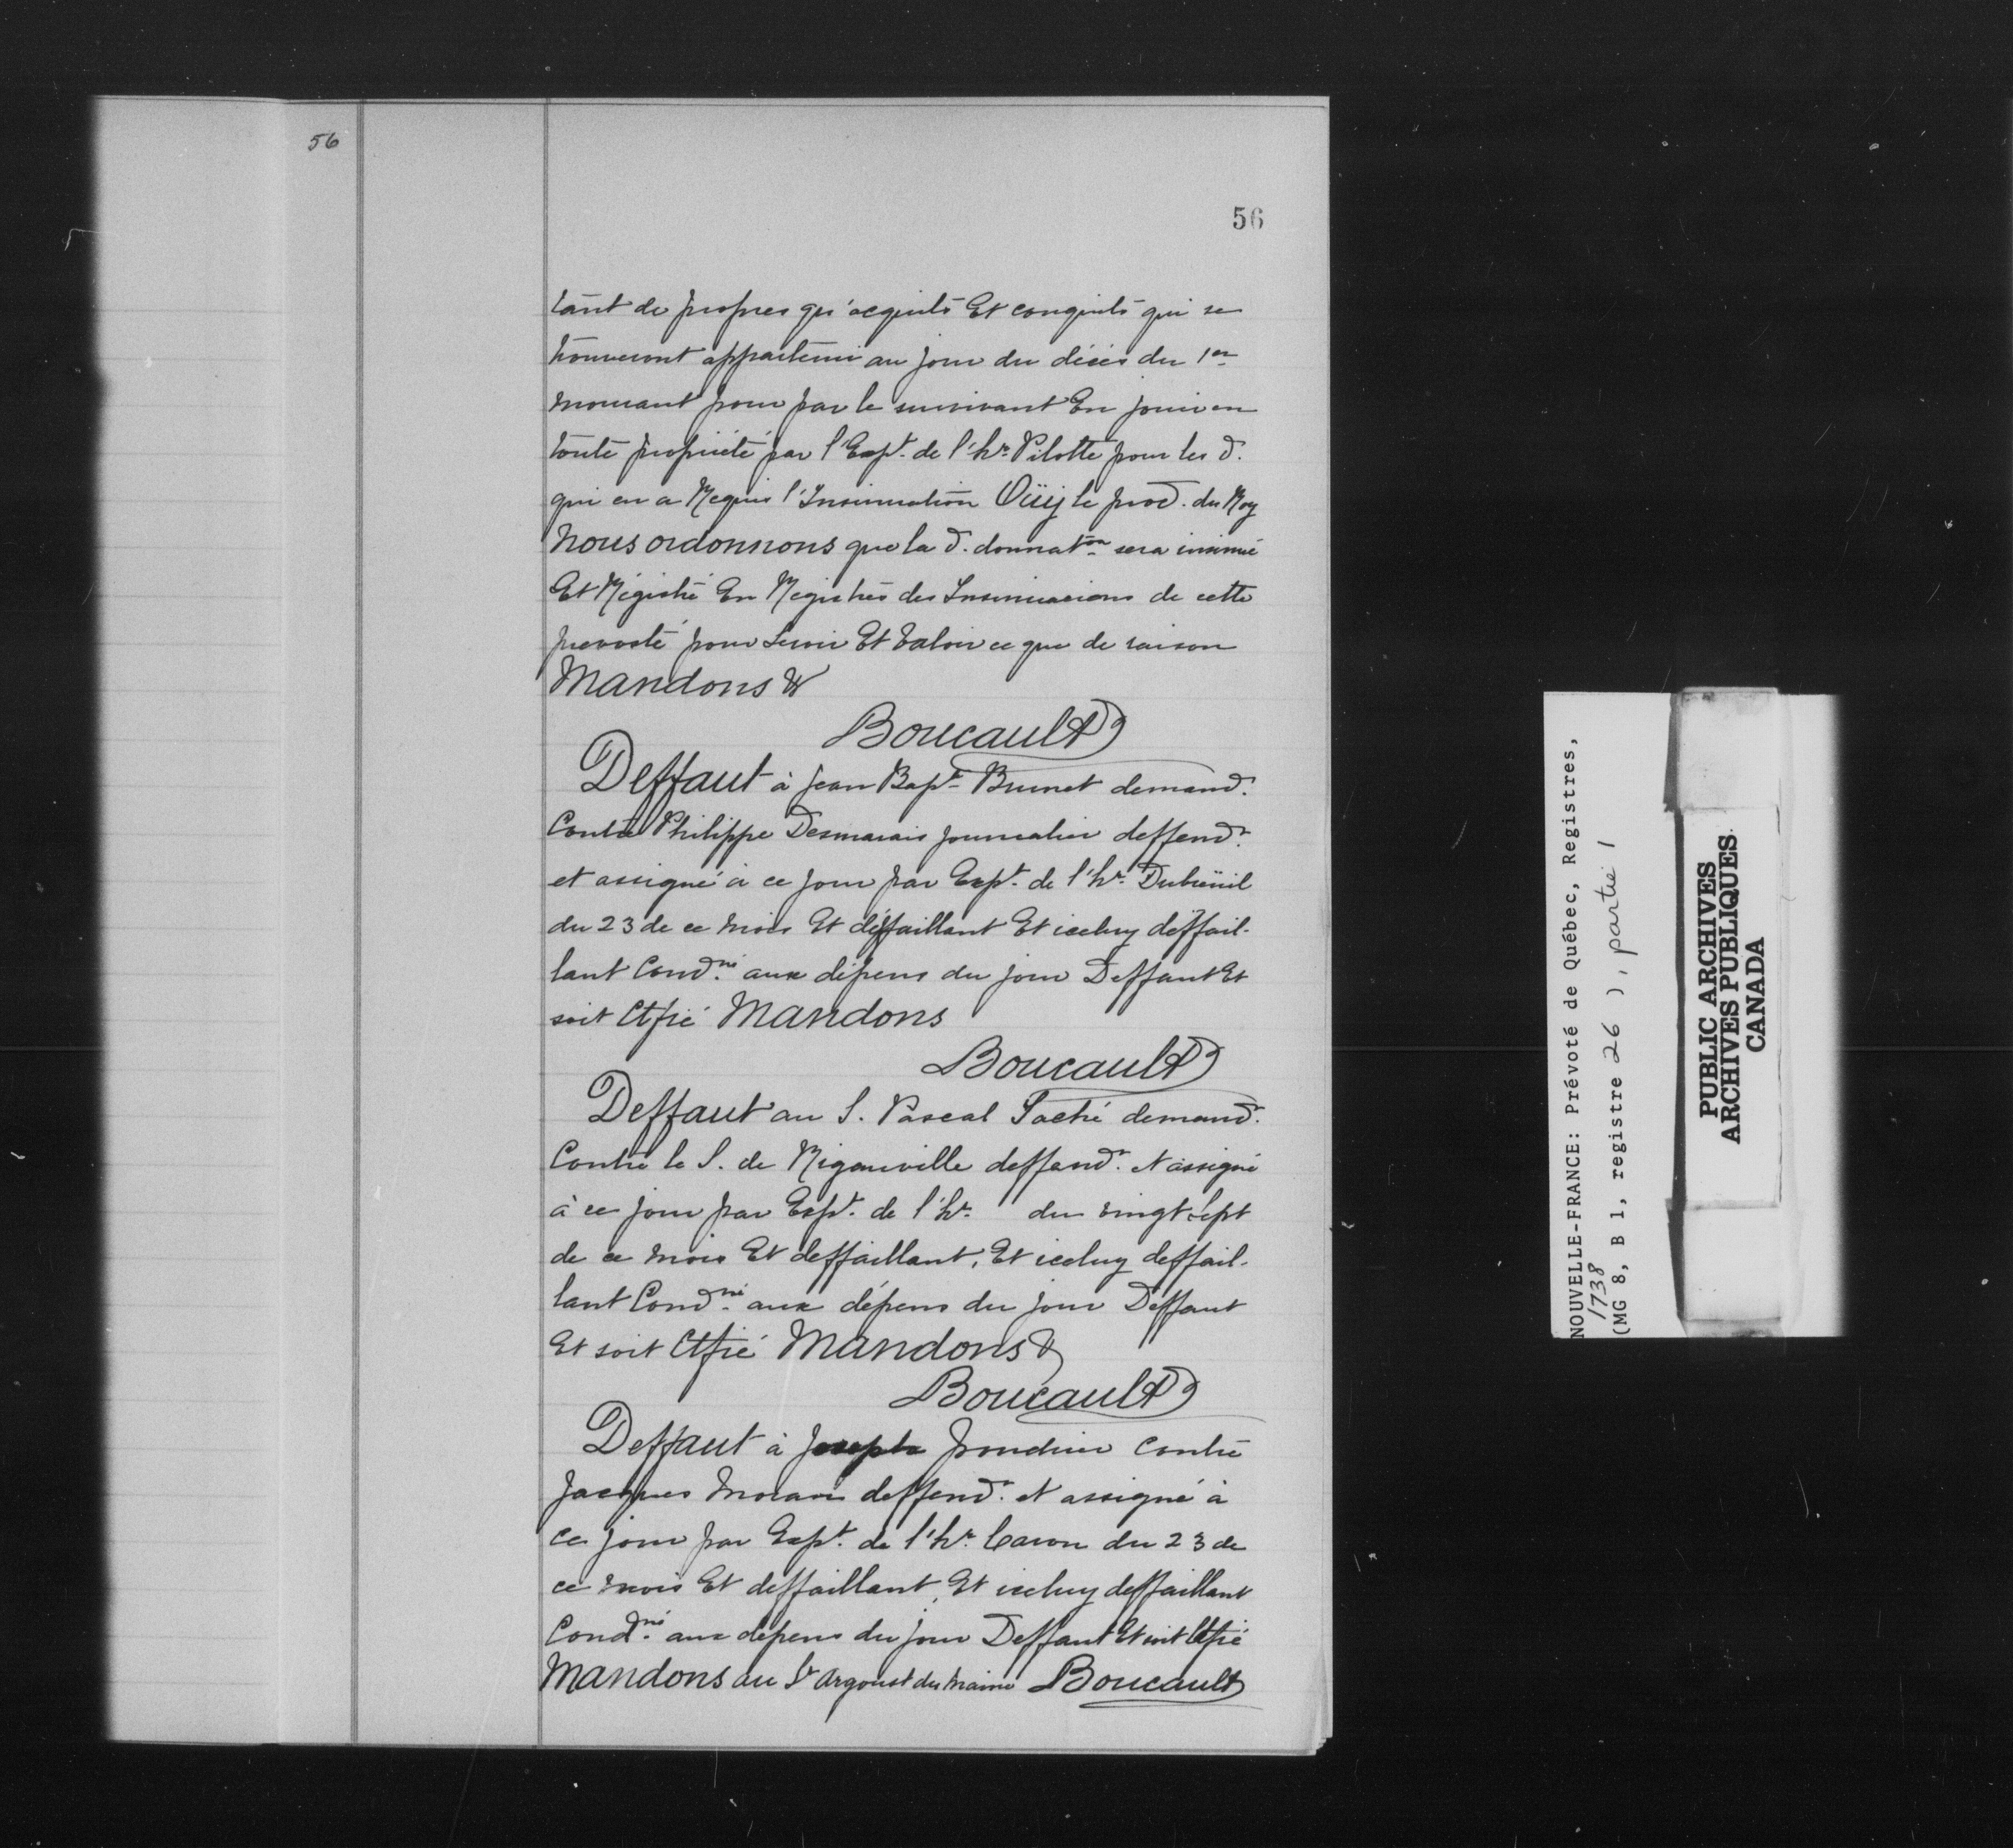 56
56
tant de propres qu'acquêts Et conquêts qui se
trouveront appartenir au jour du décès du 1er
mourant pour par le survivant En jouir en
toute propriété par l'Expt. de l'hr. Pilotte pour les d.
qui en a Requis l'Insinuation Oüij le procr. du Roy
Nous ordonnons que la d. donnaton sera insinué
Et Régistré En Registres des Insinuacions de cette
prevosté pour servir Et Valoir ce que de raison
Mandons &
Boucault
Deffaut à jean Bapt. Brunet demandr.
Contre Philippe Desmarais journalier deffendr.
et assigné à ce jour par Expt. de l'hr. Dubreüil
du 23 de ce mois Et déffaillant Et iceluy deffail-
lant Condné. aux dépens du jour Deffaut Et
soit Ctfié Mandons
Boucault
Deffaut au S. Pascal Taché demandr.
Contre le S. de Rigauville deffendr. et assigné
à ce jour par Expt. de l'hr. du vingt sept
de ce mois Et deffaillant, Et iceluy deffail-
lant Condné. aux dépens du jour Deffaut
Et soit Ctfié Mandons &
Boucault
Deffaut à Joseph Jourdin contre
Jacques Morau deffendr. et assigné à
ce jour par Expt. de l'hr. Caron du 23 de
ce mois Et deffaillant, Et iceluy deffaillant
Condné. aux dépens du jour Deffaut Et soit Ctfié
Mandons au St Argoust du maine Boucault
NOUVELLE-FRANCE: Prévoté de Québec, Registres,
1738
(MG 8, B 1, registre 26 ), partie 1
PUBLIC ARCHIVES
ARCHIVES PUBLIQUES
CANADA